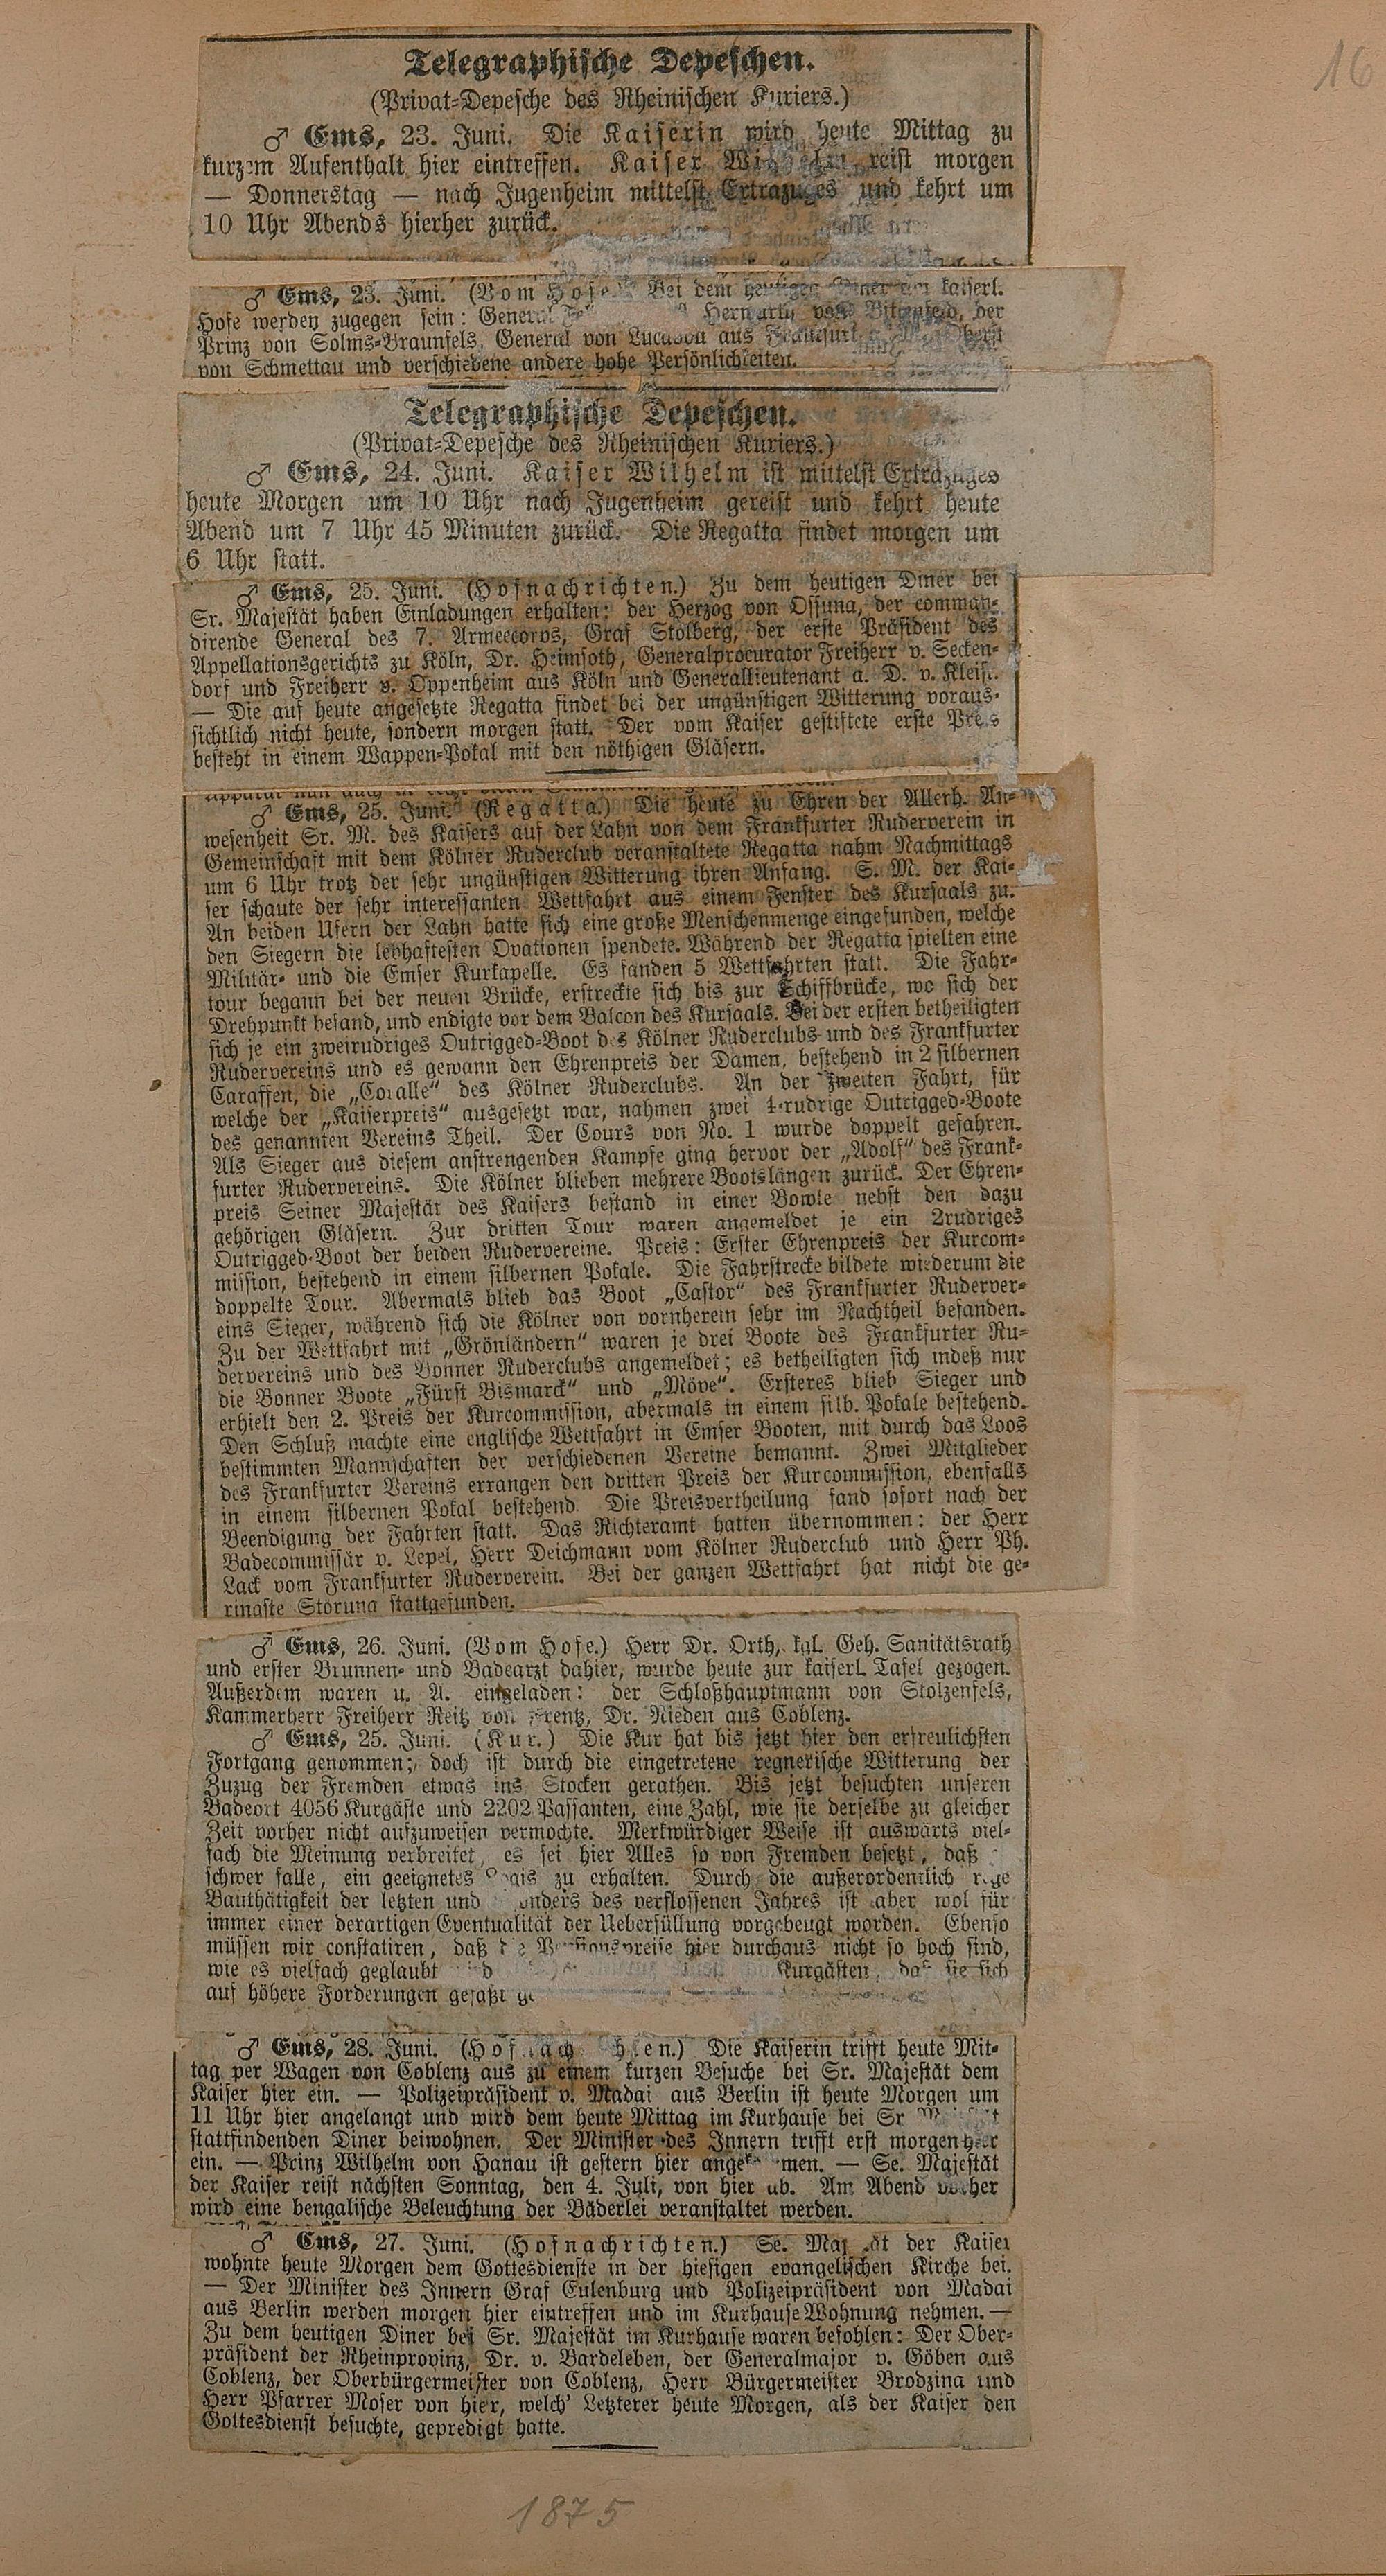 16
Telegraphische Depeschen.
(Privat-Depesche des Rheinischen Kuriers.)
♂ Ems, 23. Juni. Die Kaiserin wird heute Mittag zu
kurzem Aufenthalt hier eintreffen. Kaiser reist morgen
— Donnerstag — nach Jugenheim mittelst Extrazuges und kehrt um
10 Uhr Abends hierher zurück.
♂ Ems, 23. Juni. (Vom Hofe.) Bei dem heutigen Diner am kaiserl.
Hofe werden zugegen sein: General Herwarth von Bittenfeld, der
Prinz von Solms-Braunfels, General von Lucadou aus Frankfurt
von Schmettau und verschiedene andere hohe Persönlichkeiten.
Telegraphische Depeschen.
(Privat-Depesche des Rheinischen Kuriers.)
♂ Ems, 24. Juni. Kaiser Wilhelm ist mittelst Extrazuges
heute Morgen um 10 Uhr nach Jugenheim gereist und kehrt heute
Abend um 7 Uhr 45 Minuten zurück. Die Regatta findet morgen um
6 Uhr statt.
♂ Ems, 25. Juni. (Hofnachrichten.) Zu dem heutigen Diner bei
Sr. Majestät haben Einladungen erhalten: der Herzog von Ossuna, der comman-
dirende General des 7. Armeecorps, Graf Stolberg, der erste Präsident des
Appellationsgerichts zu Köln, Dr. Heimsoth, Generalprocurator Freiherr v. Secken-
dorf und Freiherr v. Oppenheim aus Köln und Generallieutenant a. D. v. Kleist.
— Die auf heute angesetzte Regatta findet bei der ungünstigen Witterung voraus-
sichtlich nicht heute, sondern morgen statt. Der vom Kaiser gestiftete erste Preis
besteht in einem Wappen-Pokal mit den nöthigen Gläsern.
♂ Ems, 25. Juni. (Regatta.) Die heute zu Ehren der Allerh. An-
wesenheit Sr. M. des Kaisers auf der Lahn von dem Frankfurter Ruderverein in
Gemeinschaft mit dem Kölner Ruderclub veranstaltete Regatta nahm Nachmittags
um 6 Uhr trotz der sehr ungünstigen Witterung ihren Anfang. S. M. der Kai-
ser schaute der sehr interessanten Wettfahrt aus einem Fenster des Kursaals zu.
An beiden Ufern der Lahn hatte sich eine große Menschenmenge eingefunden, welche
den Siegern die lebhaftesten Ovationen spendete. Während der Regatta spielten eine
Militär- und die Emser Kurkapelle. Es fanden 5 Wettfahrten statt. Die Fahr-
tour begann bei der neuen Brücke, erstreckte sich bis zur Schiffbrücke, wo sich der
Drehpunkt befand, und endigte vor dem Balcon des Kursaals. Bei der ersten betheiligten
sich je ein zweirudriges Outrigged-Boot des Kölner Ruderclubs und des Frankfurter
Rudervereins und es gewann den Ehrenpreis der Damen, bestehend in 2 silbernen
Caraffen, die „Coralle“ des Kölner Ruderclubs. An der zweiten Fahrt, für
welche der „Kaiserpreis“ ausgesetzt war, nahmen zwei 4-rudrige Outrigged-Boote
des genannten Vereins Theil. Der Cours von No. 1 wurde doppelt gefahren.
Als Sieger aus diesem anstrengenden Kampfe ging hervor der „Adolf“ des Frank-
furter Rudervereins. Die Kölner blieben mehrere Bootslängen zurück. Der Ehren-
preis Seiner Majestät des Kaisers bestand in einer Bowle nebst den dazu
gehörigen Gläsern. Zur dritten Tour waren angemeldet je ein 2rudriges
Outrigged-Boot der beiden Rudervereine. Preis: Erster Ehrenpreis der Kurcom-
mission, bestehend in einem silbernen Pokale. Die Fahrstrecke bildete wiederum die
doppelte Tour. Abermals blieb das Boot „Castor“ des Frankfurter Ruderver-
eins Sieger, während sich die Kölner von vornherein sehr im Nachtheil befanden.
Zu der Wettfahrt mit „Grönländern“ waren je drei Boote des Frankfurter Ru-
dervereins und des Bonner Ruderclubs angemeldet; es betheiligten sich indeß nur
die Bonner Boote „Fürst Bismarck“ und „Möve“. Ersteres blieb Sieger und
erhielt den 2. Preis der Kurcommission, abermals in einem silb. Pokale bestehend.
Den Schluß machte eine englische Wettfahrt in Emser Booten, mit durch das Loos
bestimmten Mannschaften der verschiedenen Vereine bemannt. Zwei Mitglieder
des Frankfurter Vereins errangen den dritten Preis der Kurcommission, ebenfalls
in einem silbernen Pokal bestehend. Die Preisvertheilung fand sofort nach der
Beendigung der Fahrten statt. Das Richteramt hatten übernommen: der Herr
Badecommissär v. Lepel, Herr Deichmann vom Kölner Ruderclub und Herr Ph.
Lack vom Frankfurter Ruderverein. Bei der ganzen Wettfahrt hat nicht die ge-
ringste Störung stattgefunden.
♂ Ems, 26. Juni. (Vom Hofe.) Herr Dr. Orth, kgl. Geh. Sanitätsrath
und erster Brunnen- und Badearzt dahier, wurde heute zur kaiserl. Tafel gezogen.
Außerdem waren u. A. eingeladen: der Schloßhauptmann von Stolzenfels,
Kammerherr Freiherr Reitz von Frentz, Dr. Nieden aus Coblenz.
♂ Ems, 25. Juni. (Kur.) Die Kur hat bis jetzt hier den erfreulichsten
Fortgang genommen; doch ist durch die eingetretene regnerische Witterung der
Zuzug der Fremden etwas ins Stocken gerathen. Bis jetzt besuchten unseren
Badeort 4056 Kurgäste und 2202 Passanten, eine Zahl, wie sie derselbe zu gleicher
Zeit vorher nicht aufzuweisen vermochte. Merkwürdiger Weise ist auswärts viel-
fach die Meinung verbreitet, es sei hier Alles so von Fremden besetzt, daß
schwer falle, ein geeignetes Logis zu erhalten. Durch die außerordentlich rege
Bauthätigkeit der letzten und besonders des verflossenen Jahres ist aber wol für
immer einer derartigen Eventualität der Ueberfüllung vorgebeugt worden. Ebenso
müssen wir constatiren, daß die Pensionspreise hier durchaus nicht so hoch sind,
wie es vielfach geglaubt wird Kurgästen, daß sie sich
auf höhere Forderungen gefaßt
♂ Ems, 28. Juni. (Hofnachrichten.) Die Kaiserin trifft heute Mit-
tag per Wagen von Coblenz aus zu einem kurzen Besuche bei Sr. Majestät dem
Kaiser hier ein. — Polizeipräsident v. Madai aus Berlin ist heute Morgen um
11 Uhr hier angelangt und wird dem heute Mittag im Kurhause bei Sr Majestät
stattfindenden Diner beiwohnen. Der Minister des Innern trifft erst morgen hier
ein. — Prinz Wilhelm von Hanau ist gestern hier angekommen. — Se. Majestät
der Kaiser reist nächsten Sonntag, den 4. Juli, von hier ab. Am Abend vorher
wird eine bengalische Beleuchtung der Bäderlei veranstaltet werden.
♂ Ems, 27. Juni. (Hofnachrichten.) Se. Majestät der Kaiser
wohnte heute Morgen dem Gottesdienste in der hiesigen evangelischen Kirche bei.
— Der Minister des Innern Graf Eulenburg und Polizeipräsident von Madai
aus Berlin werden morgen hier eintreffen und im Kurhause Wohnung nehmen. —
Zu dem heutigen Diner bei Sr. Majestät im Kurhause waren befohlen: Der Ober-
präsident der Rheinprovinz, Dr. v. Bardeleben, der Generalmajor v. Göben aus
Coblenz, der Oberbürgermeister von Coblenz, Herr Bürgermeister Brodzina und
Herr Pfarrer Moser von hier, welch' Letzterer heute Morgen, als der Kaiser den
Gottesdienst besuchte, gepredigt hatte.
1875